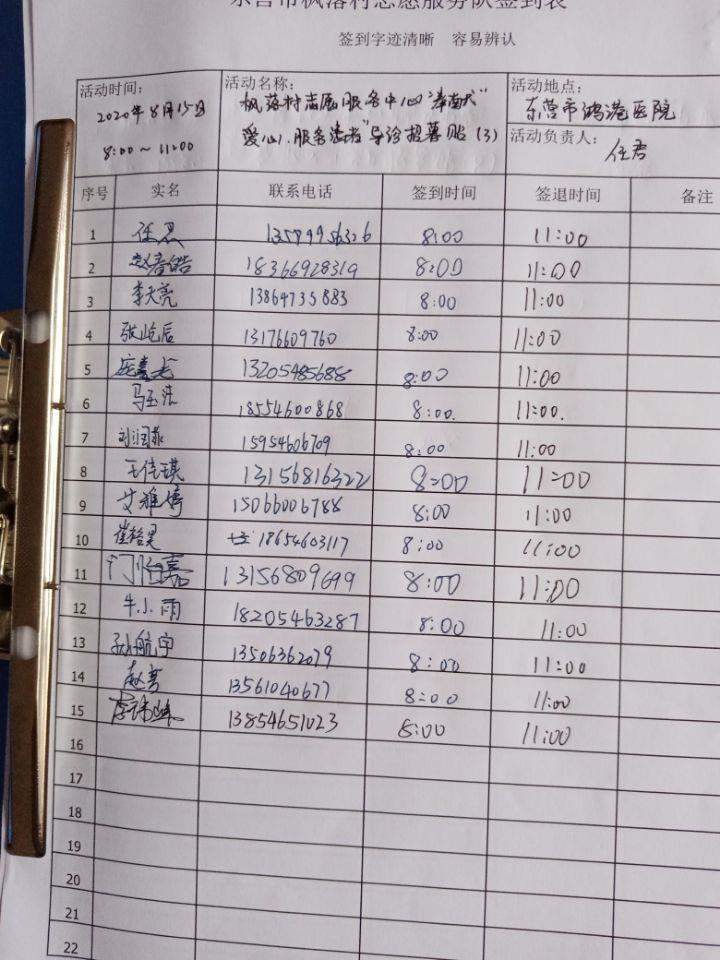 东营市枫落村志愿服务队签到表
签到字迹清晰 容易辨认
活动时间:
2020年8月15日
8:00～11:00
活动名称:
枫落村志愿服务中心
爱心服务 导诊招募贴(3)
活动地点:
东营市鸿港医院
活动负责人:
任君
序号 实名 联系电话 签到时间 签退时间 备注
1 8:00 11:00
2 赵春皓 18366928319 8:00 11:00
3 李天亮 13864735883 8:00 11:00
4 张屹后 13176609760 8:00 11:00
5 13205485688 8:00 11:00
6 马玉浩 18554600868 8:00. 11:00.
7 刘润菲 15954606709 8:00 11:00
8 王佳琪 13156816322 8:00 11:00
9 艾雅婷 15066006788 8:00 11:00
10 崔格昊 18654603117 8:00 11:00
11 13156809699 8:00 11:00
12 牛小雨 18205463287 8:00 11:00
13 孙航宇 13506362079 8:00 11:00
14 13561040677 8:00 11:00
15 13854651023 8:00 11:00
16
17
18
19
20
21
22